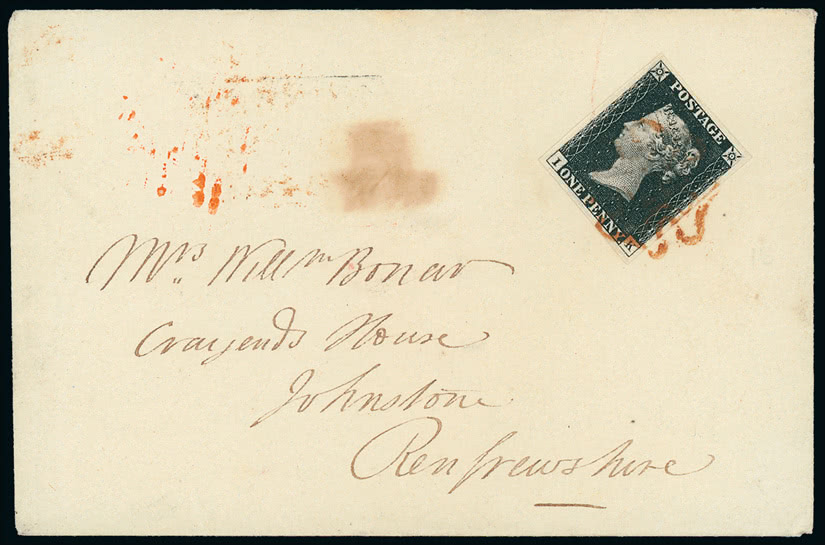 POSTAGE
I ONE PENNY K
Mrs Willm Bonar
Crayends House
Johnstone
Renfrewshire